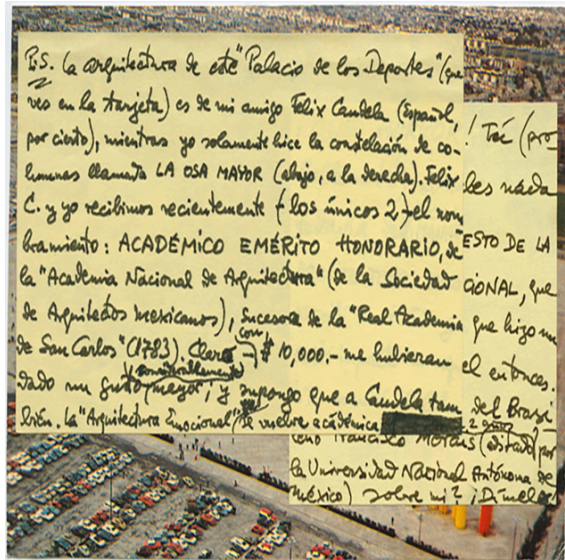 P.S. La arquitectura de este "Palacio de los Deportes" (que
ves en la tarjeta) es de mi amigo Felix Candela (Español,
por cierto), mientras yo solamente hice la constelación de co-
lumnas llamada LA OSA MAYOR (abajo, a la derecha). Felix
C. y yo recibimos recientemente (los únicos 2) el nom
bramiento: ACADÉMICO EMÉRITO HONORARIO, de
la "Academia Nacional de Arquitectura" (de la Sociedad
de Arquitectos Mexicanos), sucesora de la "Real Academia
de San Carlos" (1783). Claro con $ 10,000.- me hubieran
dado un gusto considerablemente mayor, y supongo que a Candela tam
bién. La "Arquitectura Emocional" se vuelve académica
! Tú (pro
bes nada
ESTO DE LA
CIONAL, que
que hizo un
el entonces.
del Brasi
2 años
leño Francisco Morais (editado por
la Universidad Nacional Autónoma de
México) sobre mi? ¡Dámelo